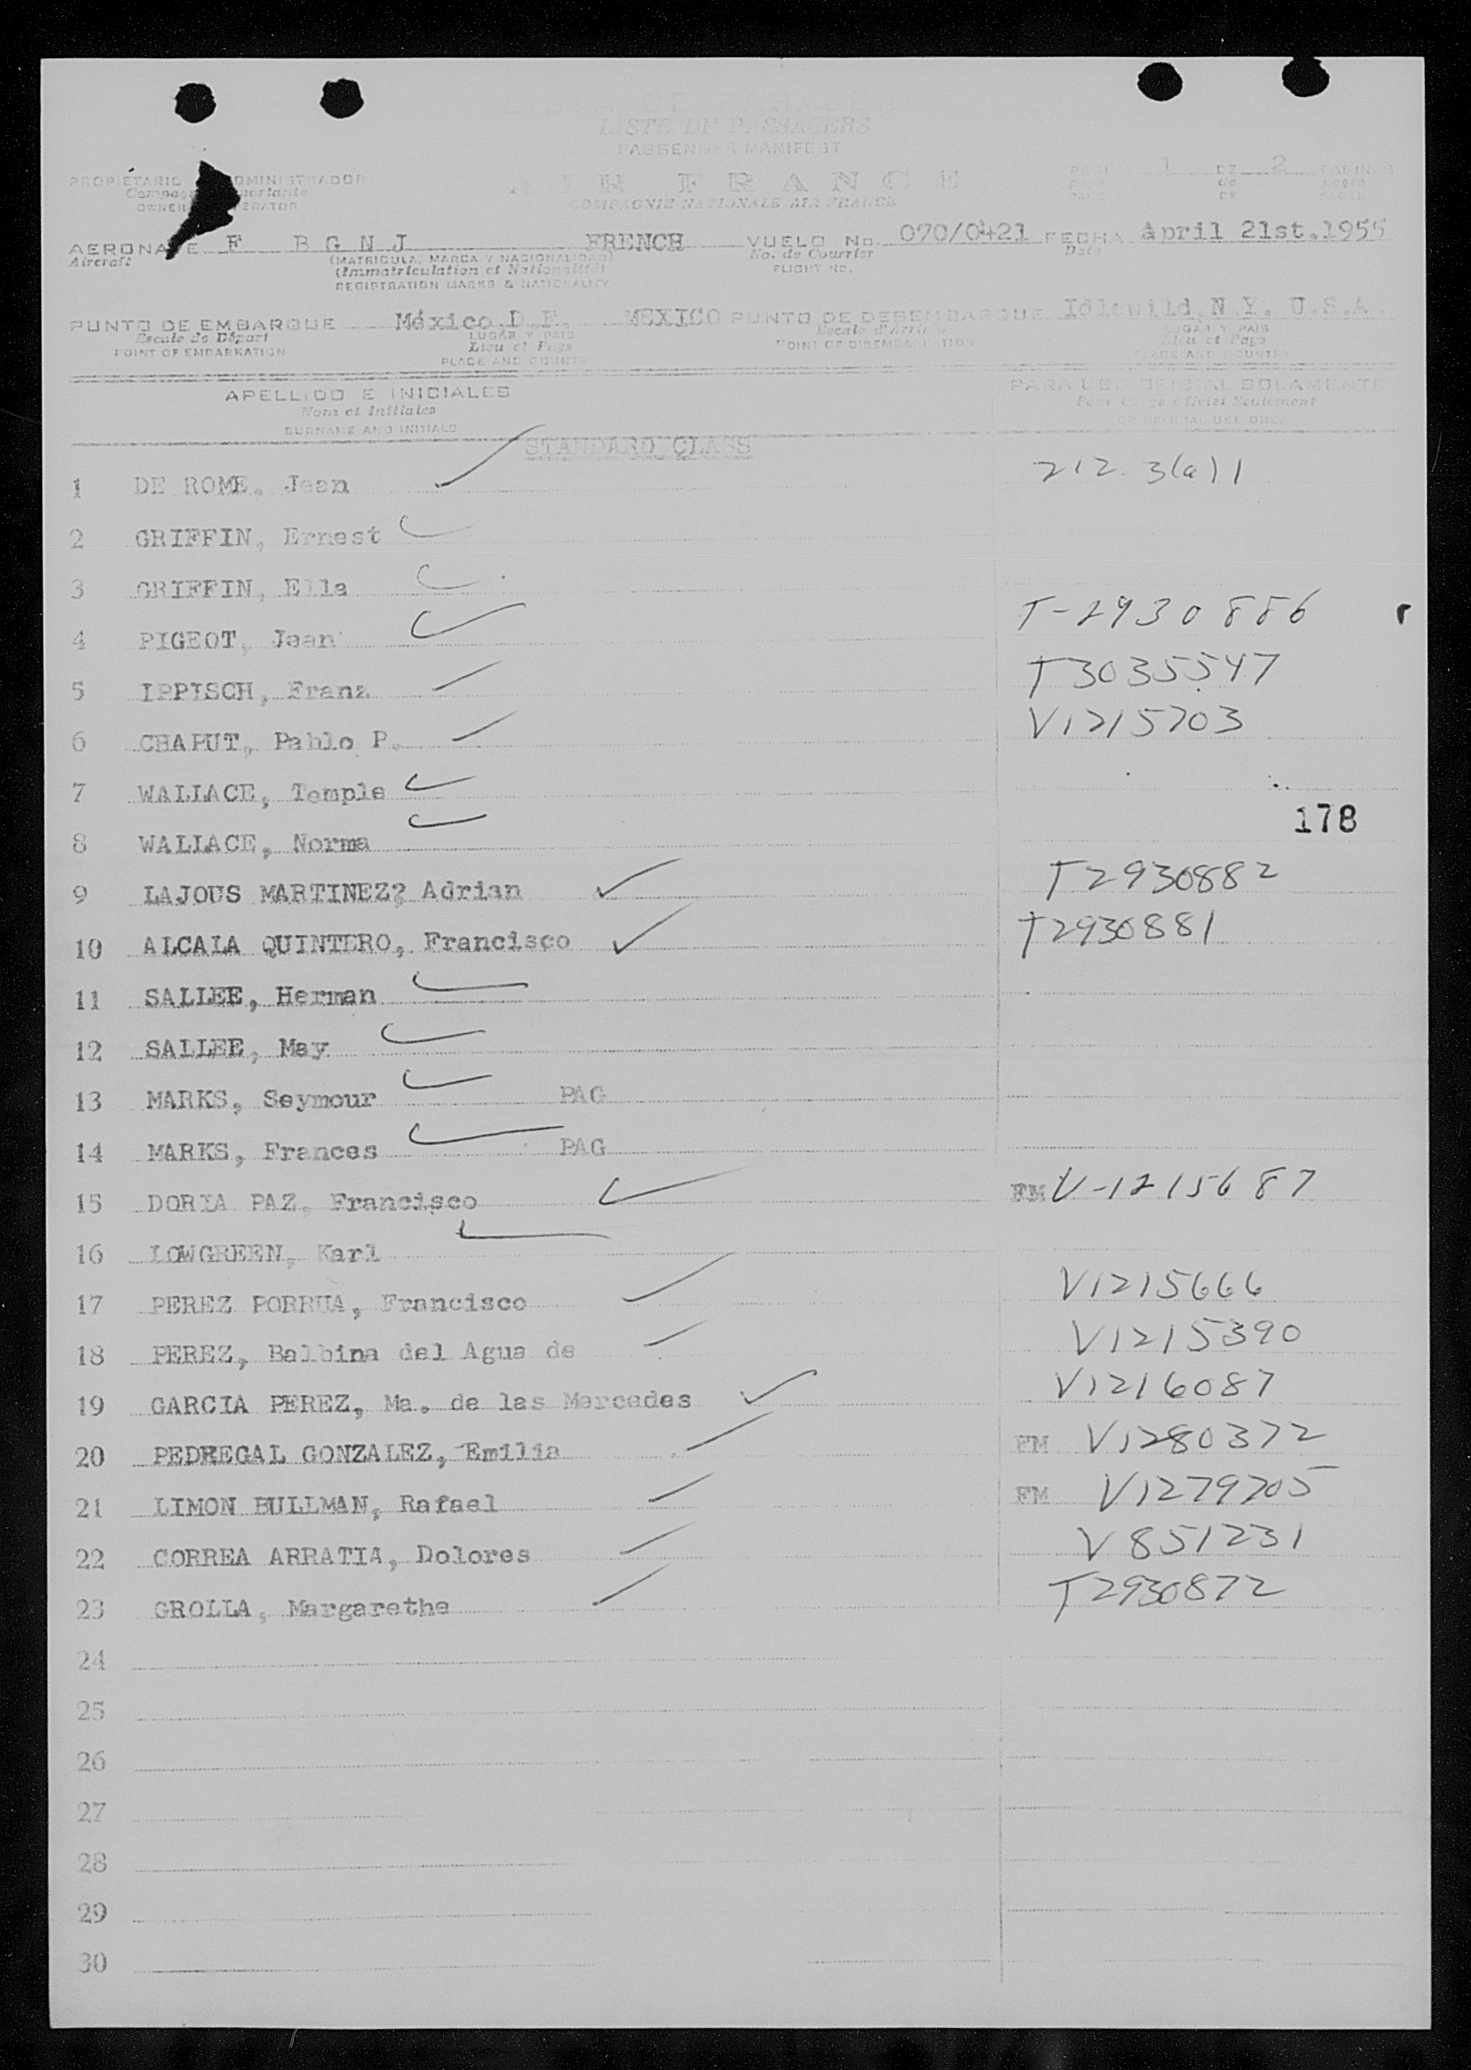 LISTE DE PASSAGERS
PASSENGER MANIFEST
PROPIETARIO ADMINISTRADOR
OWNER
AIR FRANCE
COMPAGNIE NATIONALE AIR FRANCE
1 DE 2
AERONAVE F BGNJ FRENCH VUELO No. 070/0421 FECHA April 21st.1955
Aircraft (MATRICULA, MARCA Y NACIONALIDAD) No. de Courrier Date
(Immatriculation et Nationalité) FLIGHT NO.
REGISTRATION MARKS & NATIONALITY
PUNTO DE EMBARQUE México.D.F. MEXICO PUNTO DE DESEMBARQUE Idlewild,N.Y. U.S.A.
Escale de Départ LUGAR Y PAIS Escale d'Arrivée LUGAR Y PAIS
POINT OF EMBARKATION Lieu et Pays POINT OF DISEMBARKATION Lieu et Pays
PLACE AND COUNTRY PLACE AND COUNTRY
APELLIDO E INICIALES PARA USO OFICIAL SOLAMENTE
Nom et Initiales
SURNAME AND INITIALS FOR OFFICIAL USE ONLY
STANDARD CLASS
1 DE ROME, Jean 212.3(a)1
2 GRIFFIN, Ernest
3 GRIFFIN, Ella
4 PIGEOT, Jean T-2930886
5 IPPISCH, Franz T3035547
6 CHAPUT, Pablo P. V1215703
7 WALLACE, Temple
178
8 WALLACE, Norma
9 LAJOUS MARTINEZ? Adrian T2930882
10 ALCALA QUINTERO, Francisco T2930881
11 SALLEE, Herman
12 SALLEE, May
13 MARKS, Seymour PAG
14 MARKS, Frances PAG
15 DORIA PAZ, Francisco FM V-1215687
16 LOWGREEN, Karl
17 PEREZ PORRUA, Francisco V1215666
18 PEREZ, Balbina del Agua de V1215390
19 GARCIA PEREZ, Ma. de las Mercedes V1216087
20 PEDREGAL GONZALEZ, Emilia FM V1280372
21 LIMON BULLMAN, Rafael FM V1279705
22 CORREA ARRATIA, Dolores V851231
23 GROLLA, Margarethe T2930872
24
25
26
27
28
29
30